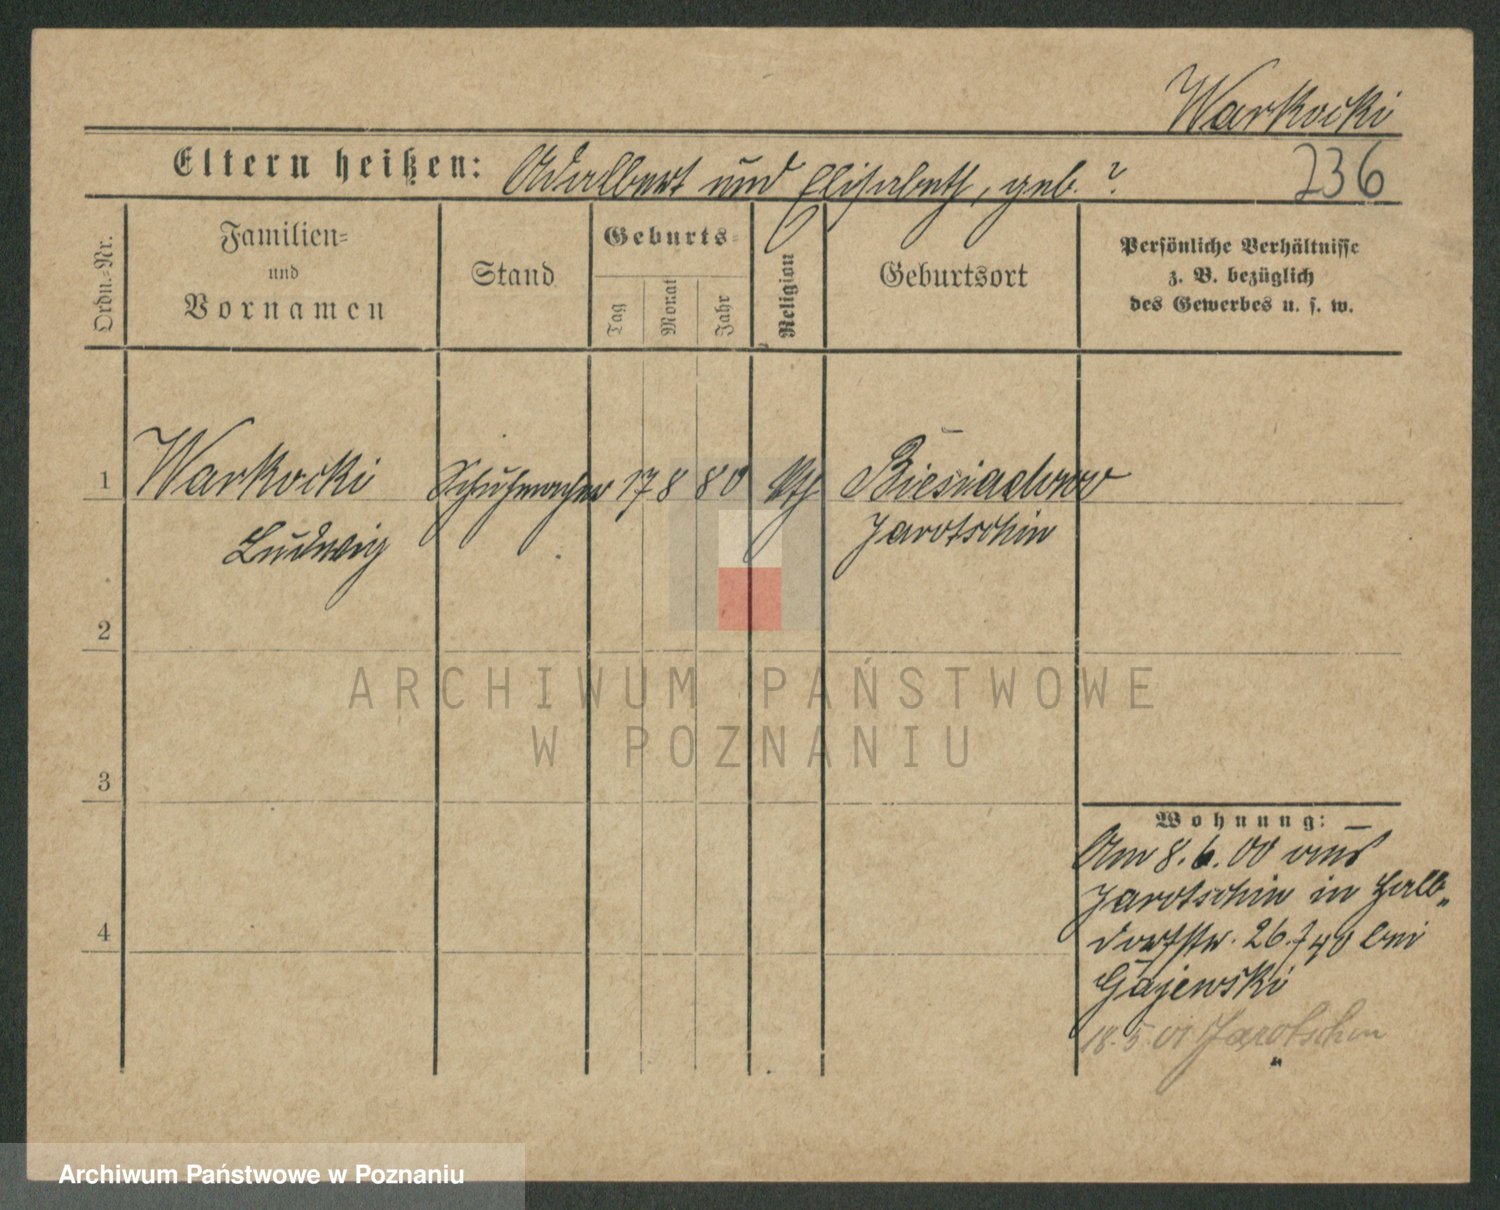 Warkocki
Eltern heißen: Adalbert und Elisabeth, geb. ?
236
Ordn.-Nr.
Familien-
und
Vornamen
Stand
Geburts-
Tag
Monat
Jahr
Religion
Geburtsort
Persönliche Verhältnisse
z. B. bezüglich
des Gewerbes u. s. w.
1 Warkocki Schuhmacher 17 8 80 kth Biesiadowo
Ludwig Jarotschin
2
ARCHIWUM PAŃSTWOWE
W POZNANIU
3
Wohnung:
Am 8.6.00 aus
Jarotschin in Halb-
4
dorfstr. 26. bei
Gajewski
18.5.01 Jarotschin
Archiwum Państwowe w Poznaniu